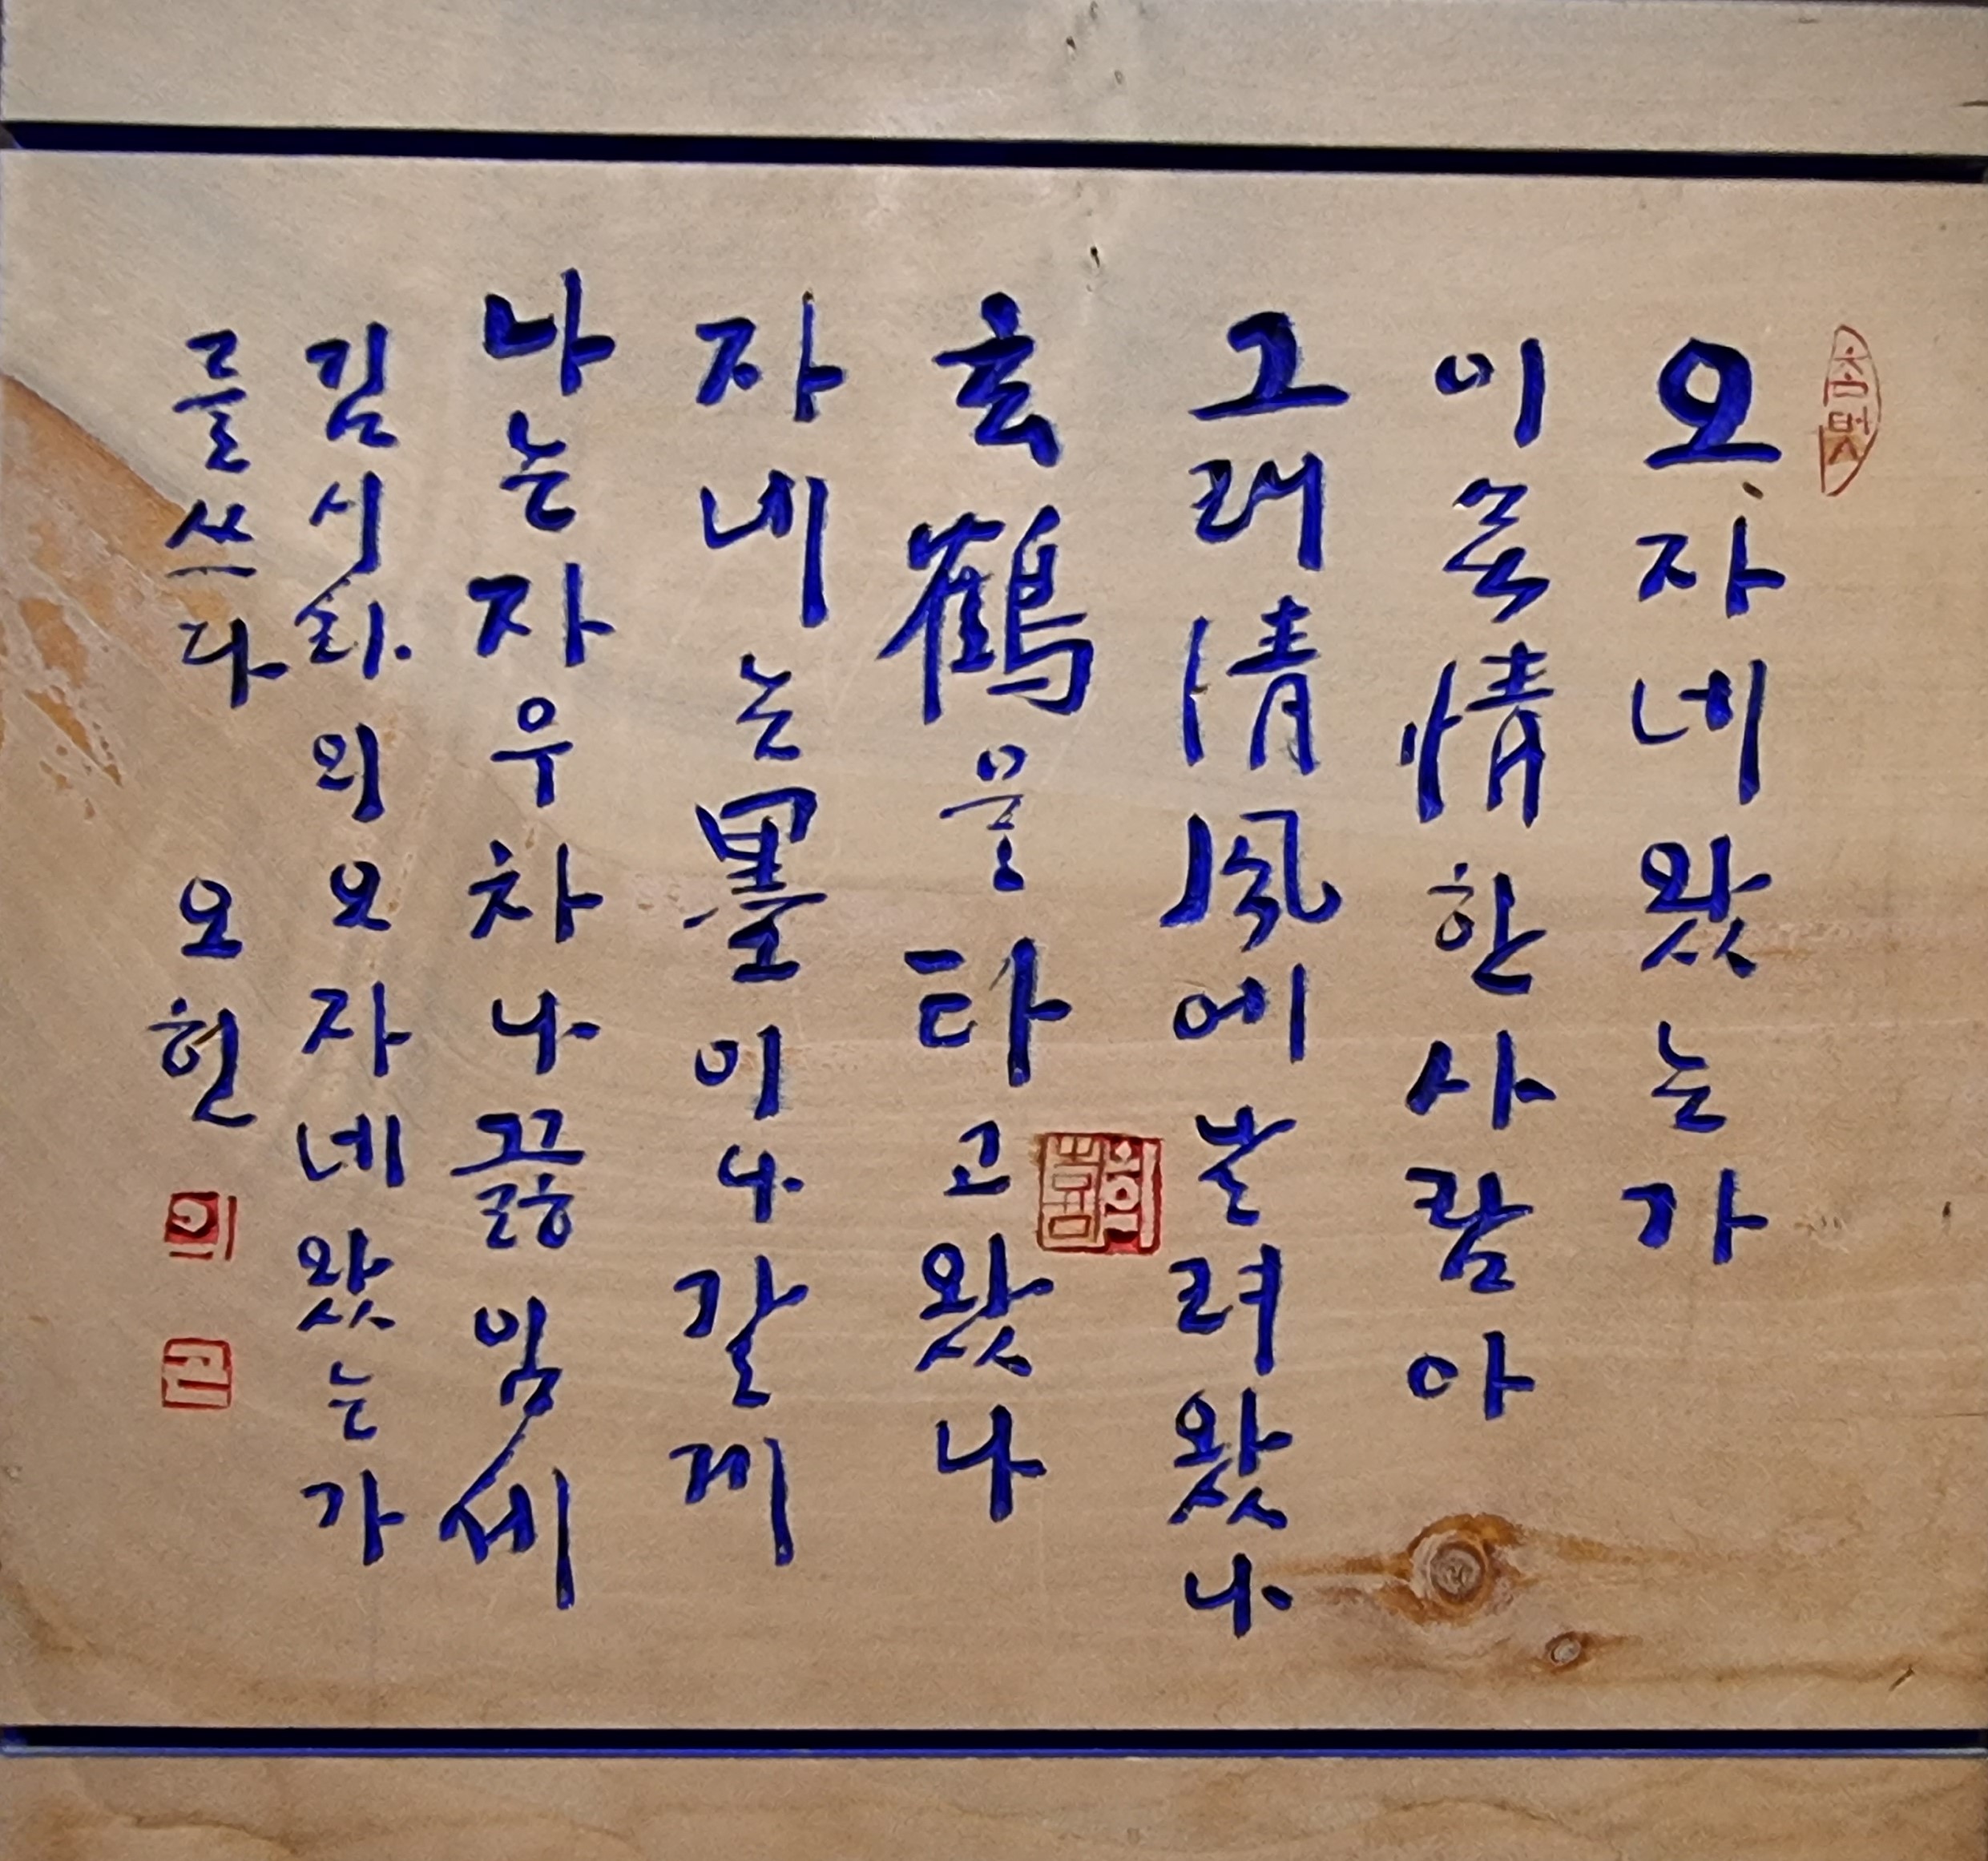 오 자네 왔는가
이 無情한 사람아
그래 清風에 날려왔나
玄鶴을 타고 왔나
자네는 墨이나 갈게
나는 자우차나 끓임세
김시라의 오 자네 왔는가
를 쓰다 오헌